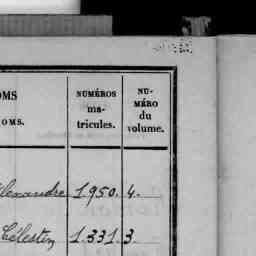 OMS
OMS.
NUMÉROS
ma-
tricules.
NU-
MÉRO
du
volume.
lexandre 1950. 4.
Célestin 1.331 3.